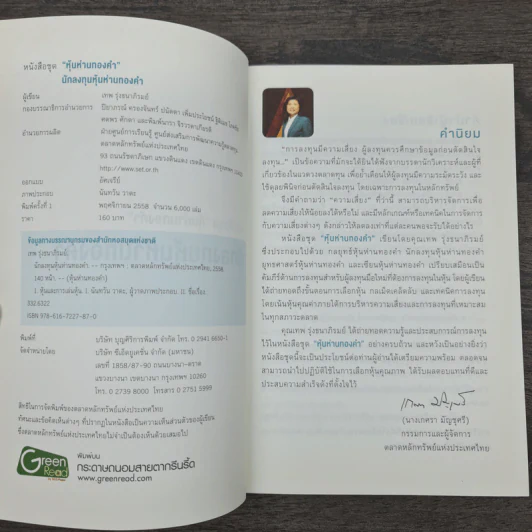 หนังสือชุด "หุ้นห่านทองคำ"
นักลงทุนหุ้นห่านทองคำ
ผู้เขียน เทพ รุ่งธนาภิรมย์
กองบรรณาธิการอำนวยการ
อำนวยการผลิต ฝ่ายศูนย์การเรียนรู้ ศูนย์ส่งเสริมการพัฒนาความรู้ตลาดทุน
ตลาดหลักทรัพย์แห่งประเทศไทย
93 ถนนรัชดาภิเษก แขวงดินแดง เขตดินแดง กรุงเทพฯ
http://www.set.or.th
ออกแบบ
ภาพประกอบ นันทวัน วาตะ
พิมพ์ครั้งที่ 1 พฤศจิกายน 2558 จำนวน 6,000 เล่ม
ราคา 160 บาท
ข้อมูลทางบรรณานุกรมของสำนักหอสมุดแห่งชาติ
เทพ รุ่งธนาภิรมย์.
นักลงทุนหุ้นห่านทองคำ -- กรุงเทพฯ : ตลาดหลักทรัพย์แห่งประเทศไทย, 2558.
140 หน้า. -- (หุ้นห่านทองคำ)
1. หุ้นและการเล่นหุ้น. I. นันทวัน วาตะ, ผู้วาดภาพประกอบ. II. ชื่อเรื่อง.
332.6322
ISBN 978-616-7227-87-0
พิมพ์ที่ บริษัท บุญศิริการพิมพ์ จำกัด โทร. 0 2941 6650-1
จัดจำหน่ายโดย บริษัท ซีเอ็ดยูเคชั่น จำกัด (มหาชน)
เลขที่ 1858/87-90 ถนนบางนา-ตราด
แขวงบางนา เขตบางนา กรุงเทพฯ 10260
โทร. 0 2739 8000 โทรสาร 0 2751 5999
สิทธิในการจัดพิมพ์ของตลาดหลักทรัพย์แห่งประเทศไทย
ทัศนะและข้อคิดเห็นต่างๆ ที่ปรากฏในหนังสือเป็นความเห็นส่วนตัวของผู้เขียน
ซึ่งตลาดหลักทรัพย์แห่งประเทศไทยไม่จำเป็นต้องเห็นด้วยเสมอไป
Green Read
พิมพ์บน
กระดาษถนอมสายตากรีนรี้ด
www.greenread.com
คำนิยม
"การลงทุนมีความเสี่ยง ผู้ลงทุนควรศึกษาข้อมูลก่อนตัดสินใจ
ลงทุน..." เป็นข้อความที่มักจะได้ยินได้ฟังจากบรรดานักวิเคราะห์และผู้ที่
เกี่ยวข้องในแวดวงตลาดทุน เพื่อย้ำเตือนให้ผู้ลงทุนมีความระมัดระวัง และ
ใช้ดุลยพินิจก่อนตัดสินใจลงทุน โดยเฉพาะการลงทุนในหลักทรัพย์
ซึ่งมีคำถามว่า "ความเสี่ยง" ที่ว่านี้ สามารถบริหารจัดการเพื่อ
ลดความเสี่ยงให้น้อยลงได้หรือไม่ และมีหลักเกณฑ์หรือเทคนิคในการจัดการ
กับความเสี่ยงต่างๆ ดังกล่าวให้ลดลงเท่าที่แต่ละคนพอจะรับได้อย่างไร
หนังสือชุด "หุ้นห่านทองคำ" เขียนโดยคุณเทพ รุ่งธนาภิรมย์
ซึ่งประกอบไปด้วย กลยุทธ์หุ้นห่านทองคำ นักลงทุนหุ้นห่านทองคำ
ยุทธศาสตร์หุ้นห่านทองคำ และเซียนหุ้นห่านทองคำ เปรียบเสมือนเป็น
คัมภีร์ด้านการลงทุนสำหรับผู้ลงทุนมือใหม่ที่ต้องการลงทุนในหุ้น โดยผู้เขียน
ได้ถ่ายทอดถึงขั้นตอนการเลือกหุ้น กลเม็ดเคล็ดลับ และเทคนิคการลงทุน
โดยเน้นหุ้นคุณค่าภายใต้การบริหารความเสี่ยงและการลงทุนที่เหมาะสม
ในทุกสภาวะตลาด
คุณเทพ รุ่งธนาภิรมย์ ได้ถ่ายทอดความรู้และประสบการณ์การลงทุน
ไว้ในหนังสือชุด "หุ้นห่านทองคำ" อย่างครบถ้วน และหวังเป็นอย่างยิ่งว่า
หนังสือชุดนี้จะเป็นประโยชน์ต่อท่านผู้อ่านได้เตรียมความพร้อม ตลอดจน
สามารถนำไปปฏิบัติใช้ในการเลือกหุ้นคุณภาพ ได้รับผลตอบแทนที่ดีและ
ประสบความสำเร็จดังที่ตั้งใจไว้
(นางเกศรา มัญชุศรี)
กรรมการและผู้จัดการ
ตลาดหลักทรัพย์แห่งประเทศไทย